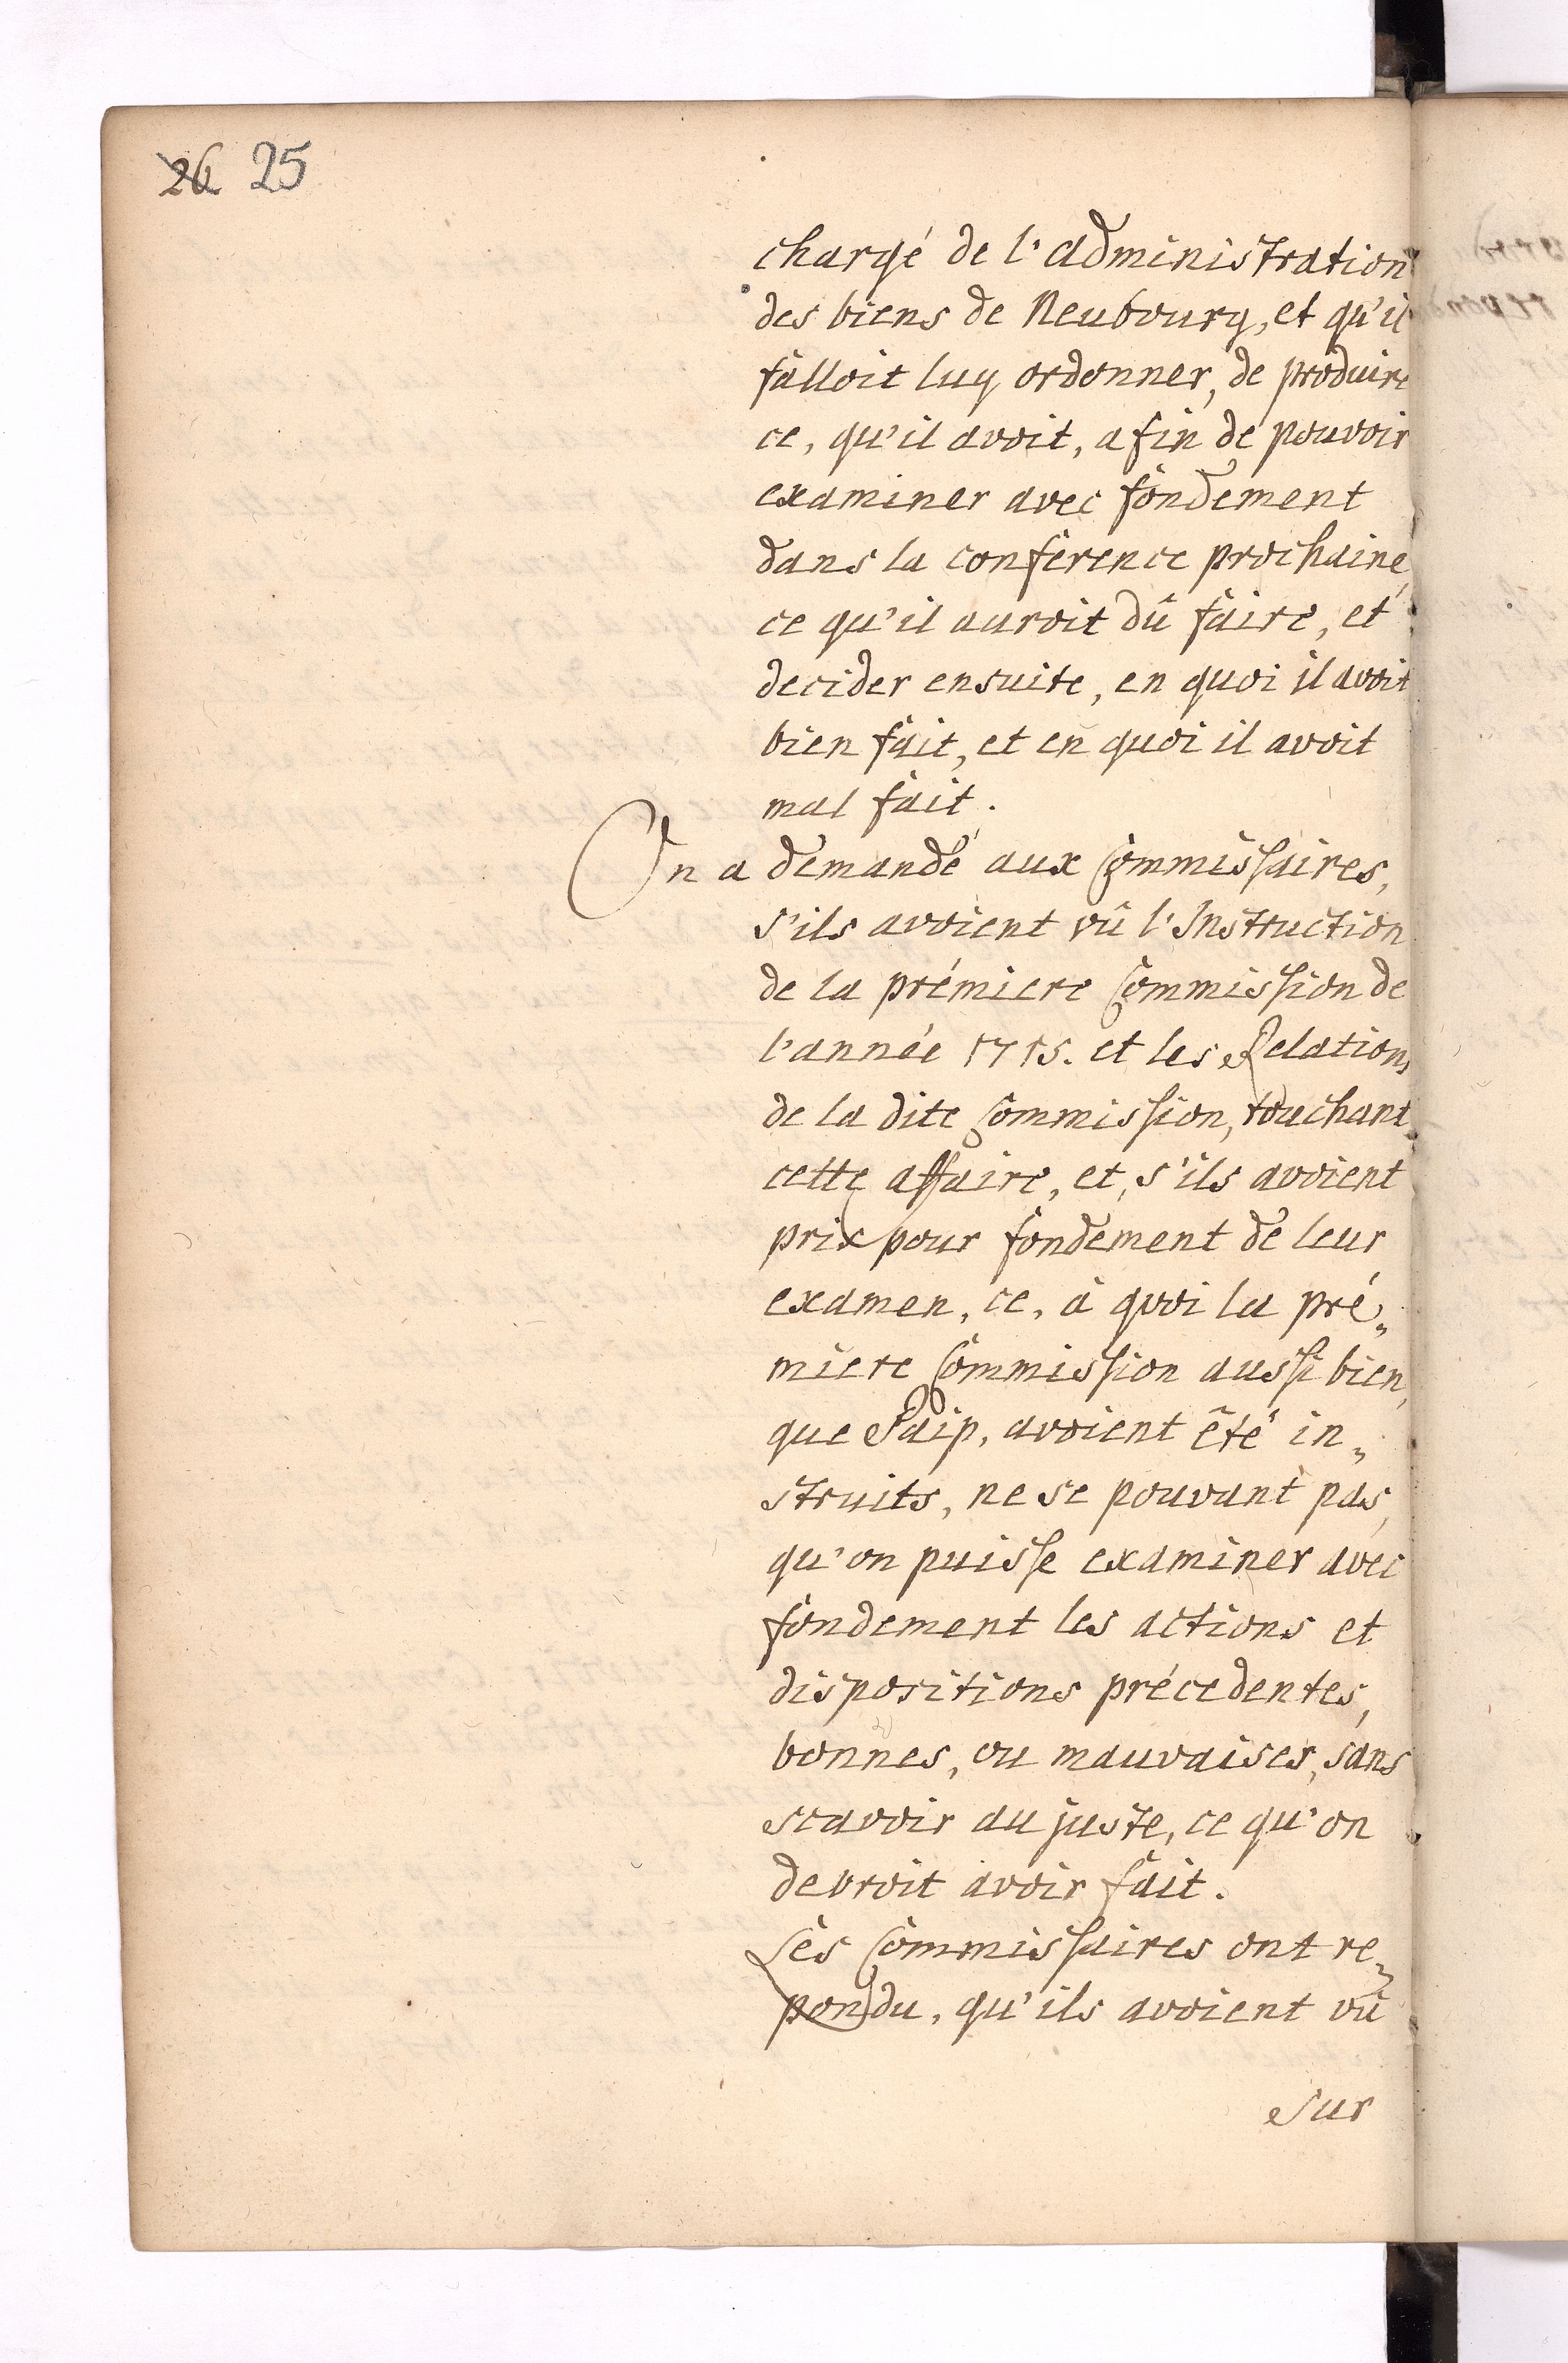 26 25
chargé de l'administration
des biens de Neubourg, et qu'il
falloit luy ordonner, de produire
ce, qu'il avoit, a fin de pouvoir
examiner avec fondement
dans la conference prochaine,
ce qu'il auroit dû faire, et
decider ensuite, en quoi il avoit
bien fait, et en quoi il avoit
mal fait.
On a demandé aux Commissaires,
s'ils avoient vû l'Instruction
de la prémiere Commission de
l'année 1715. et les Relations
de la dite Commission, touchant
cette affaire, et, s'ils avoient
prix pour fondement de leur
examen, ce, à quoi la pré„
miere Commission aussi bien,
que Paip, avoient êté in„
struits, ne se pouvant pas,
qu'on puisse examiner avec
fondement les actions et
dispositions précedentes,
bonnes, ou mauvaises, sans
scavoir au juste, ce qu'on
devroit avoir fait.
Les Commissaires ont re„
pondu, qu'ils avoient vû
sur